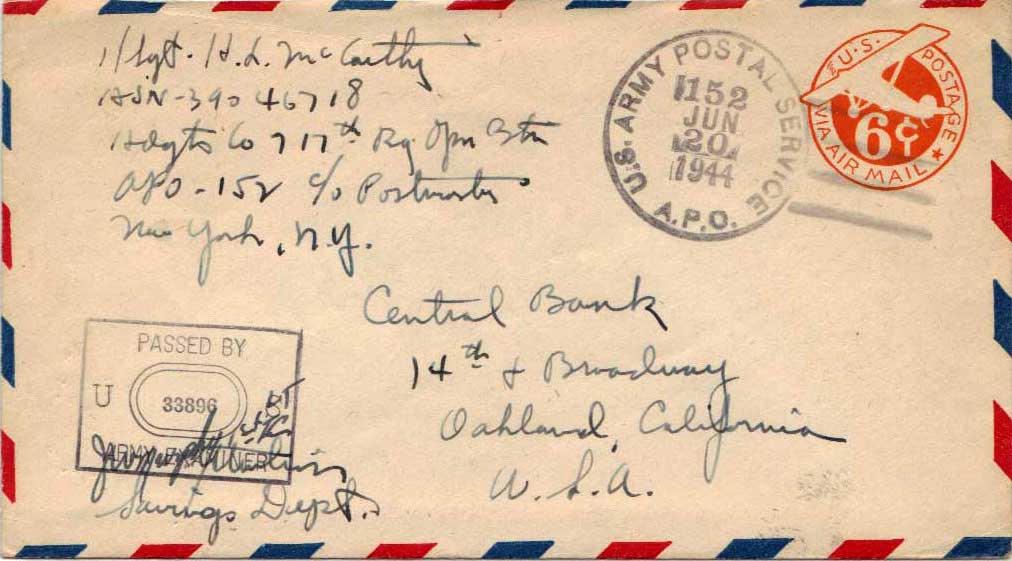 T/Sgt. H.L. McCarthy
ASN-39046718
Hdqts Co 717th Ry Opn Btn
APO-152 c/o Postmaster
New York, N.Y.
U.S. ARMY POSTAL SERVICE
A.P.O.
152
JUN
20
1944
U.S. POSTAGE
6¢
VIA AIR MAIL
Central Bank
14th & Broadway
Oakland, California
U.S.A.
PASSED BY
U S
33896
ARMY EXAMINER
Savings Dept.